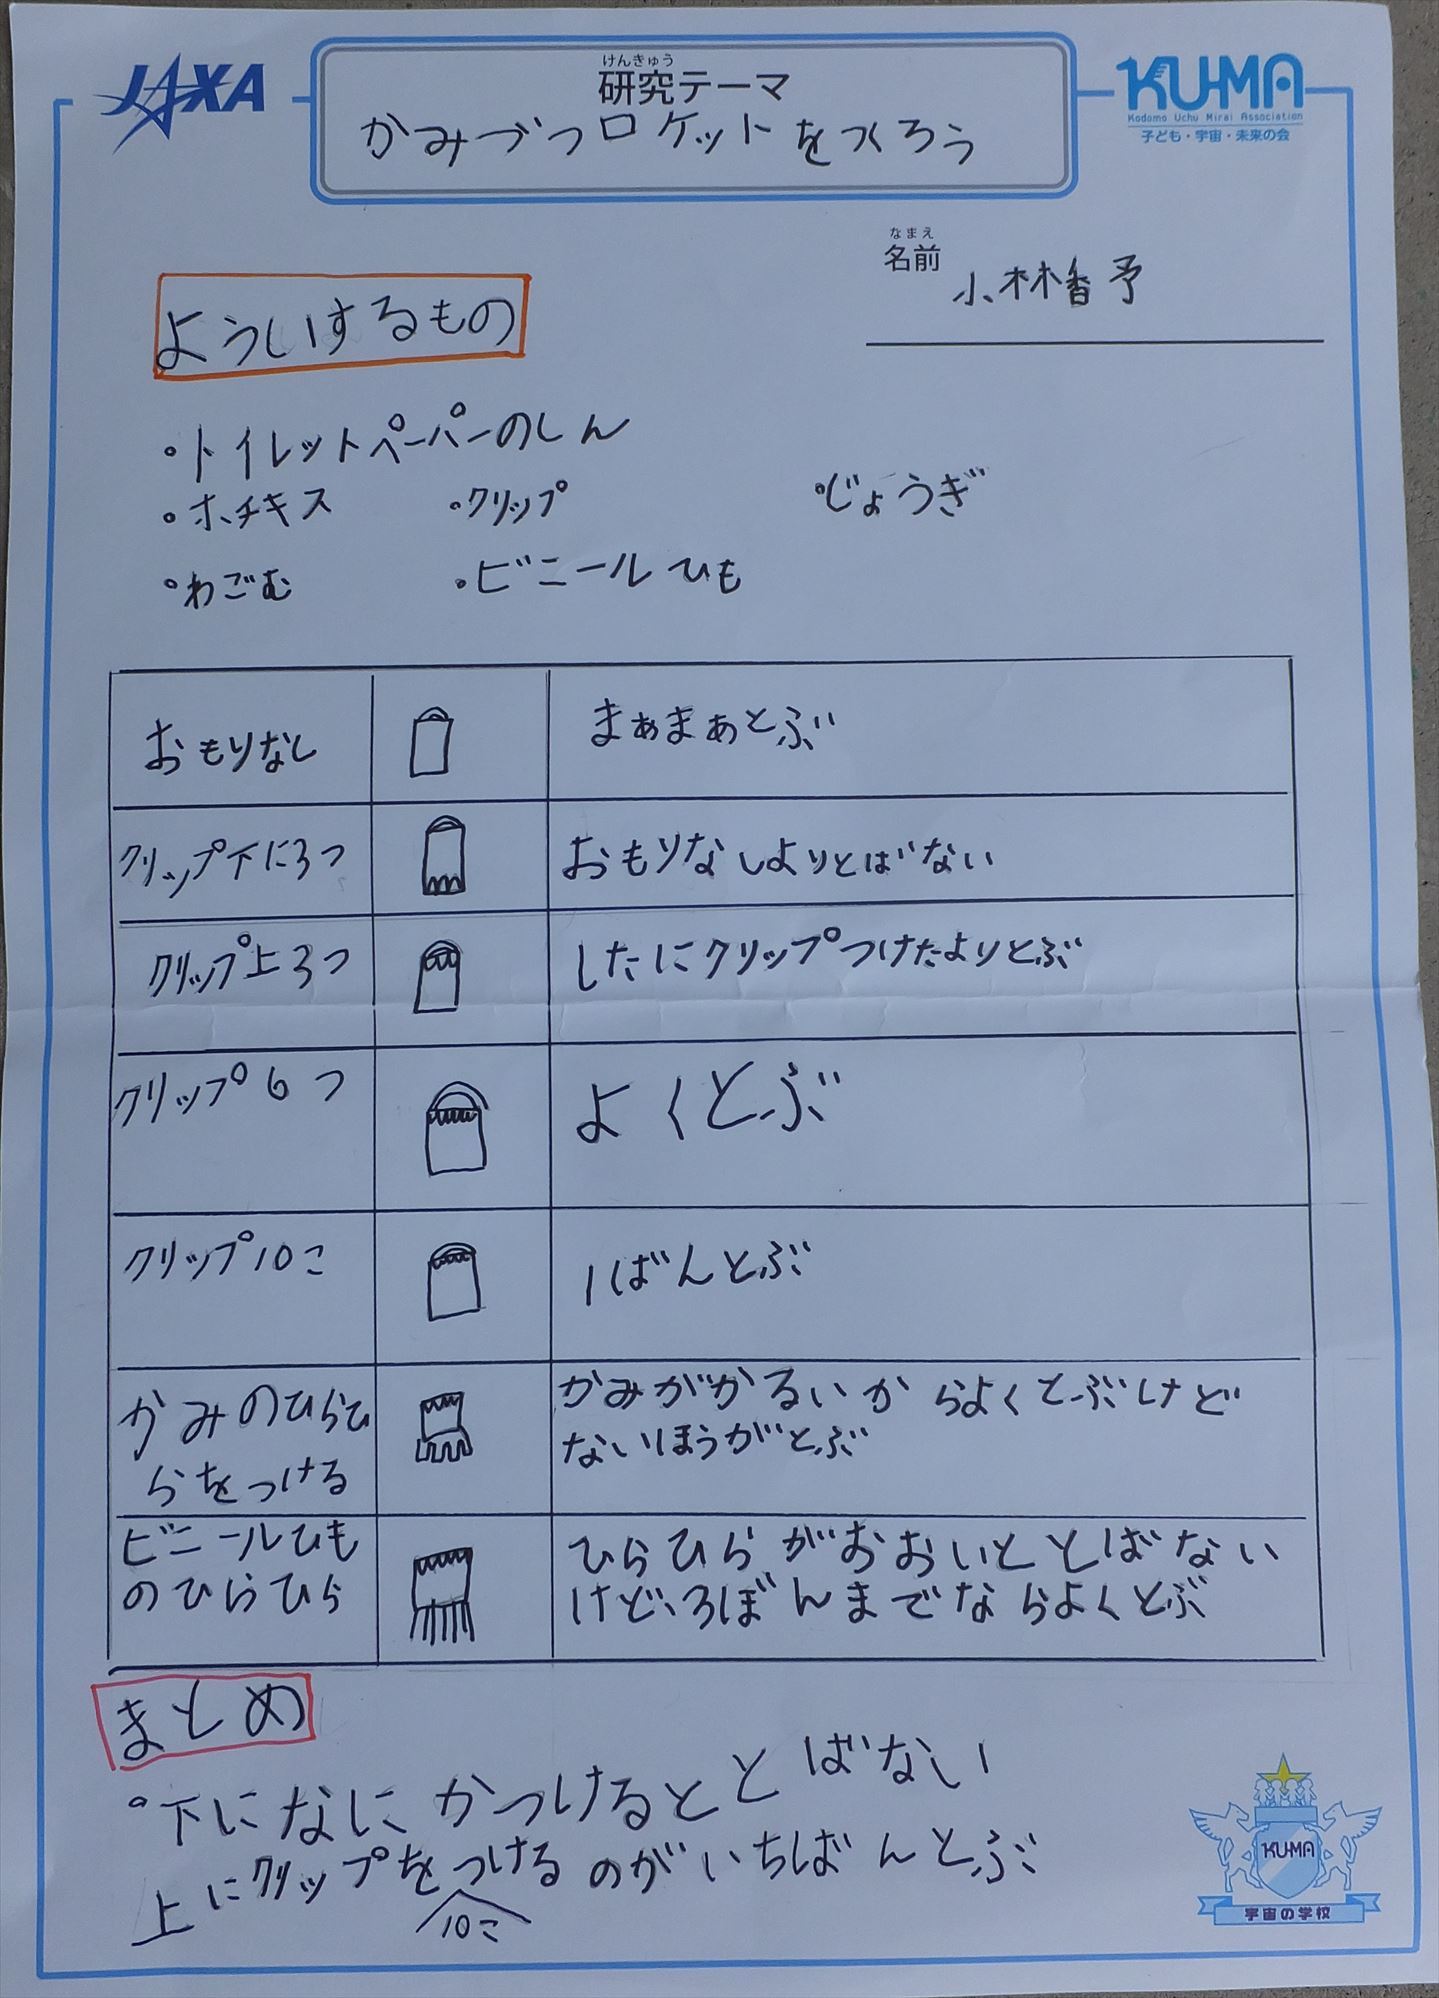 JAXA
けんきゅう
研究テーマ
KU-MA
Kodomo Uchu Mirai Association
子ども・宇宙・未来の会
かみづつロケットをつくろう
なまえ
名前
小林香予
よういするもの
・トイレットペーパーのしん
・ホチキス ・クリップ ・じょうぎ
・わごむ ・ビニールひも
おもりなし まぁまぁとぶ
クリップ下に3つ おもりなしよりとばない
クリップ上3つ したにクリップつけたよりとぶ
クリップ6つ よくとぶ
クリップ10こ 1ばんとぶ
かみのひらひ かみがかるいからよくとぶけど
らをつける ないほうがとぶ
ビニールひも ひらひらがおおいととばない
のひらひら けど、3ぼんまでならよくとぶ
まとめ
・下になにかつけるととばない
上にクリップをつけるのがいちばんとぶ
10こ
KU-MA
宇宙の学校